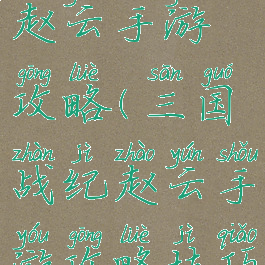 赵云手游
gōng lüè sān guó
攻略(三国
zhàn jì zhào yún shǒu
战纪赵云手
yóu gōng lüè jì qiǎo
游攻略技巧